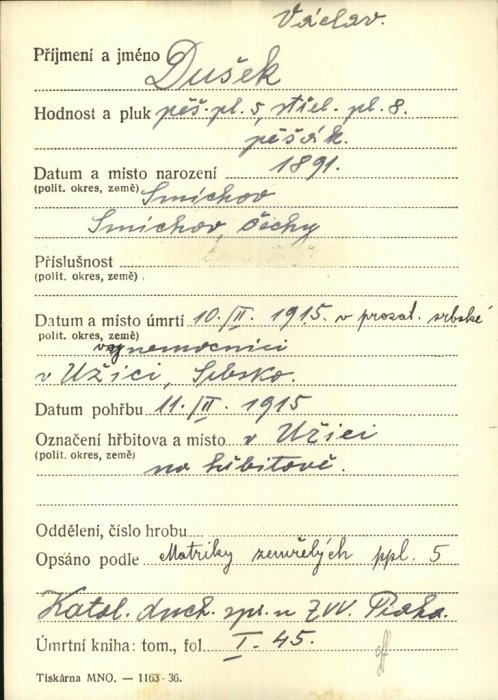 Václav.
Příjmení a jméno Dušek
Hodnost a pluk pěš. pl. 5, střel. pl. 8.
pěšák.
Datum a místo narození 1891.
(polit. okres, země) Smíchov
Smíchov, Čechy
Příslušnost
(polit. okres, země)
Datum a místo úmrtí 10./II. 1915. v prozat. srbské
(polit. okres, země) nemocnici
v Užici, Srbsko.
Datum pohřbu 11./II. 1915
Označení hřbitova a místo v Užici
(polit. okres, země) na hřbitově.
Oddělení, číslo hrobu
Opsáno podle Matriky zemřelých ppl. 5
Katol. duch. spr. u ZVV. Praha.
Úmrtní kniha: tom., fol. I. 45.
Tiskárna MNO. — 1163-36.